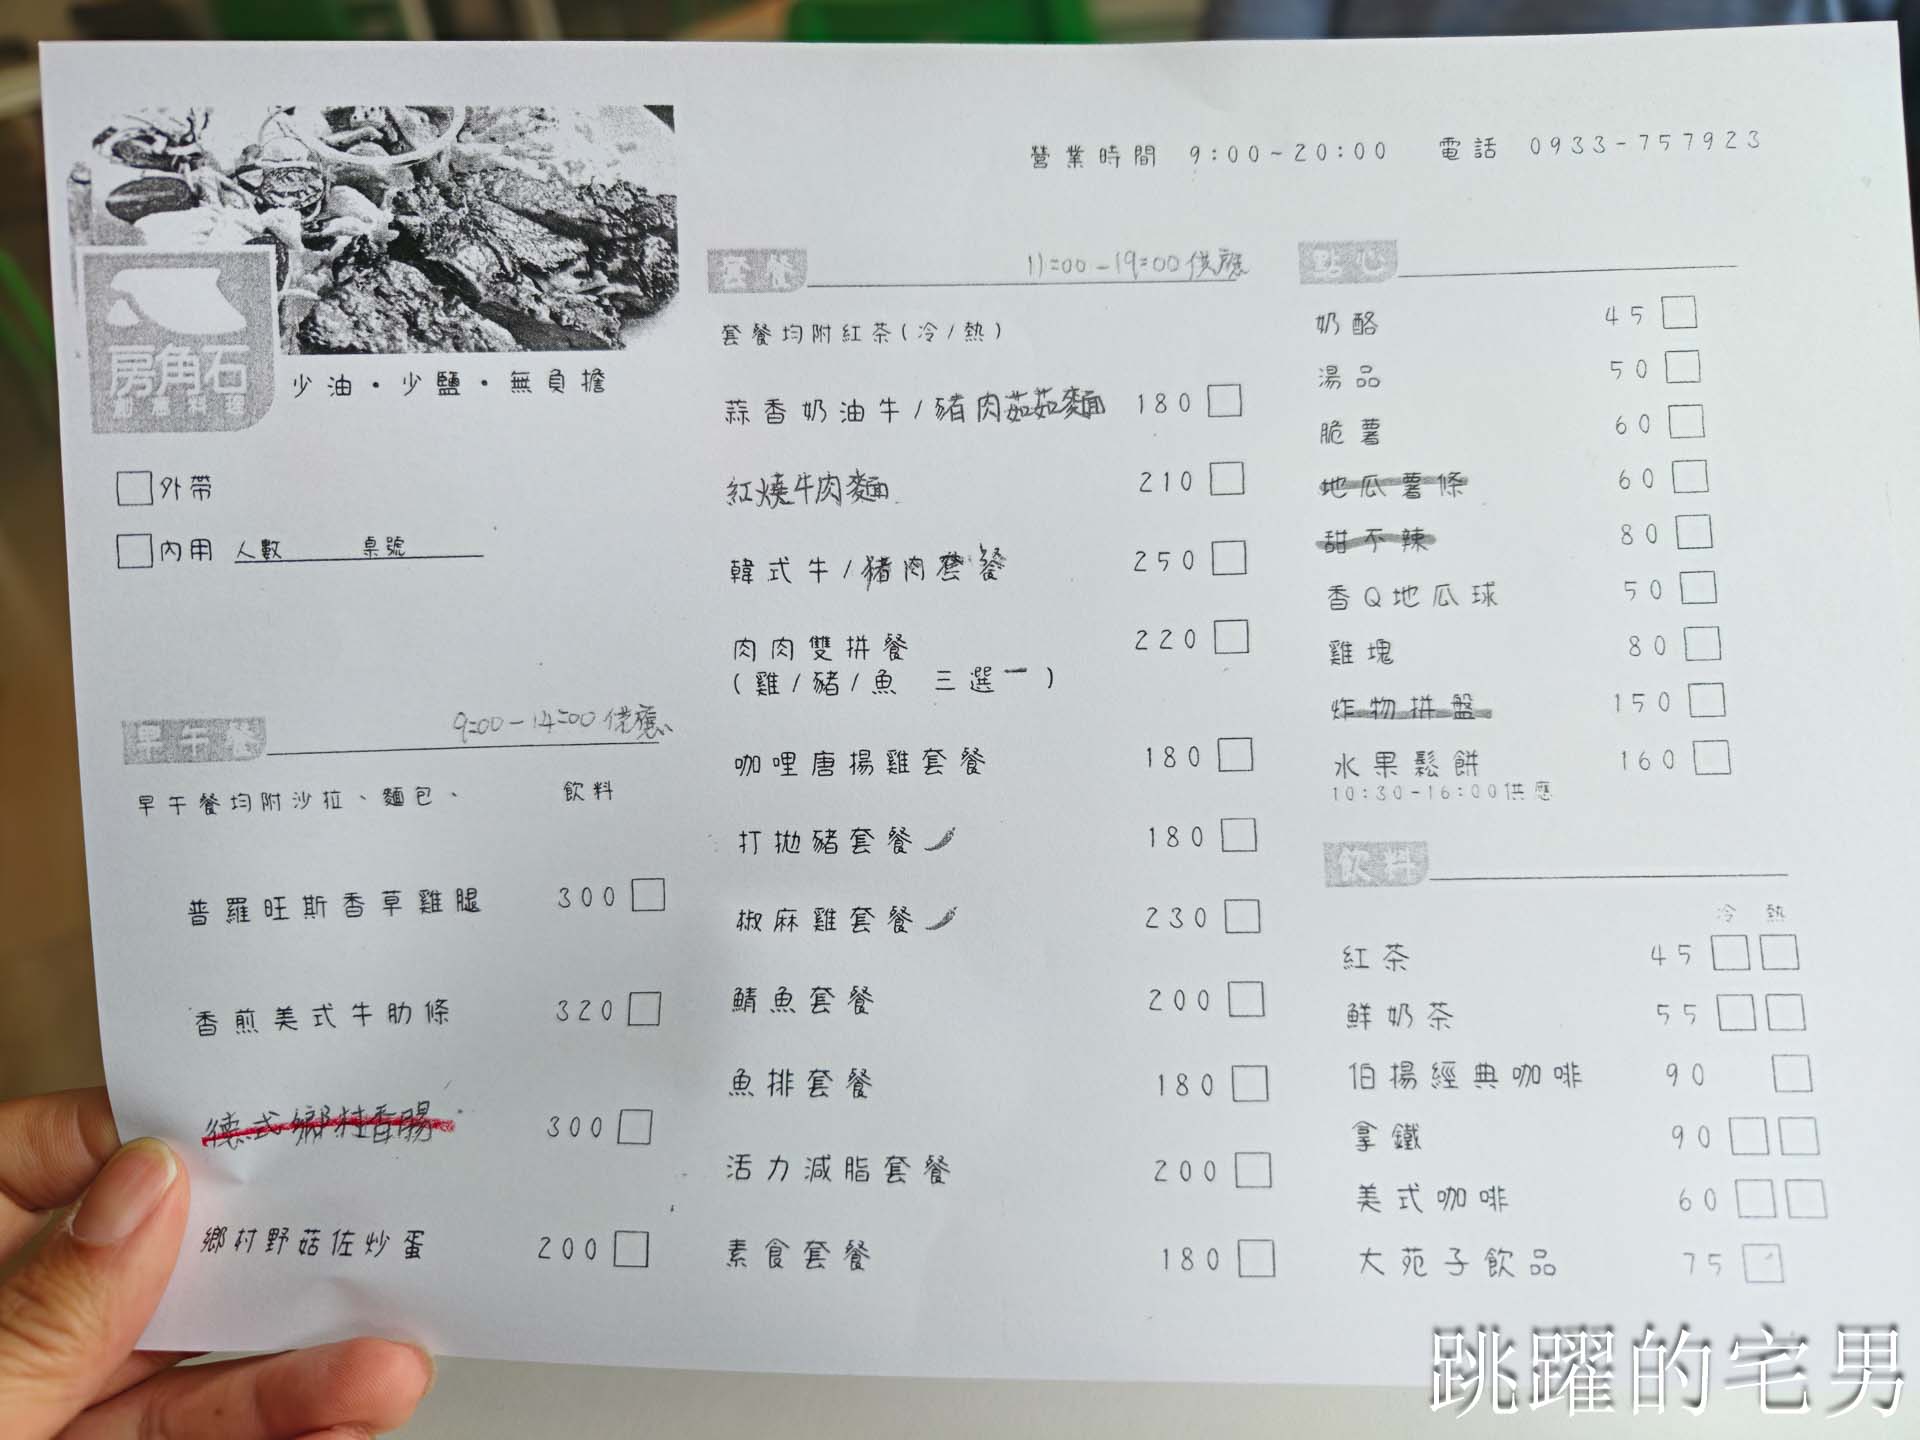 房角石
創意料理
少油・少鹽・無負擔
外帶
內用 人數 桌號
早午餐 9:00-14:00供應
早午餐均附沙拉、麵包、 飲料
普羅旺斯香草雞腿 300
香煎美式牛肋條 320
德式鄉村香腸 300
鄉村野菇佐炒蛋 200
營業時間 9:00~20:00 電話 0933-757923
套餐 11:00-19:00供應
套餐均附紅茶(冷/熱)
蒜香奶油牛/豬肉菇菇麵 180
紅燒牛肉麵 210
韓式牛/豬肉套餐 250
肉肉雙拼餐 220
(雞/豬/魚 三選一)
咖哩唐揚雞套餐 180
打拋豬套餐 180
椒麻雞套餐 230
鯖魚套餐 200
魚排套餐 180
活力減脂套餐 200
素食套餐 180
點心
奶酪 45
湯品 50
脆薯 60
地瓜薯條 60
甜不辣 80
香Q地瓜球 50
雞塊 80
炸物拼盤 150
水果鬆餅 160
10:30-16:00供應
飲料
冷 熱
紅茶 45
鮮奶茶 55
伯揚經典咖啡 90
拿鐵 90
美式咖啡 60
大苑子飲品 75
跳躍的宅男